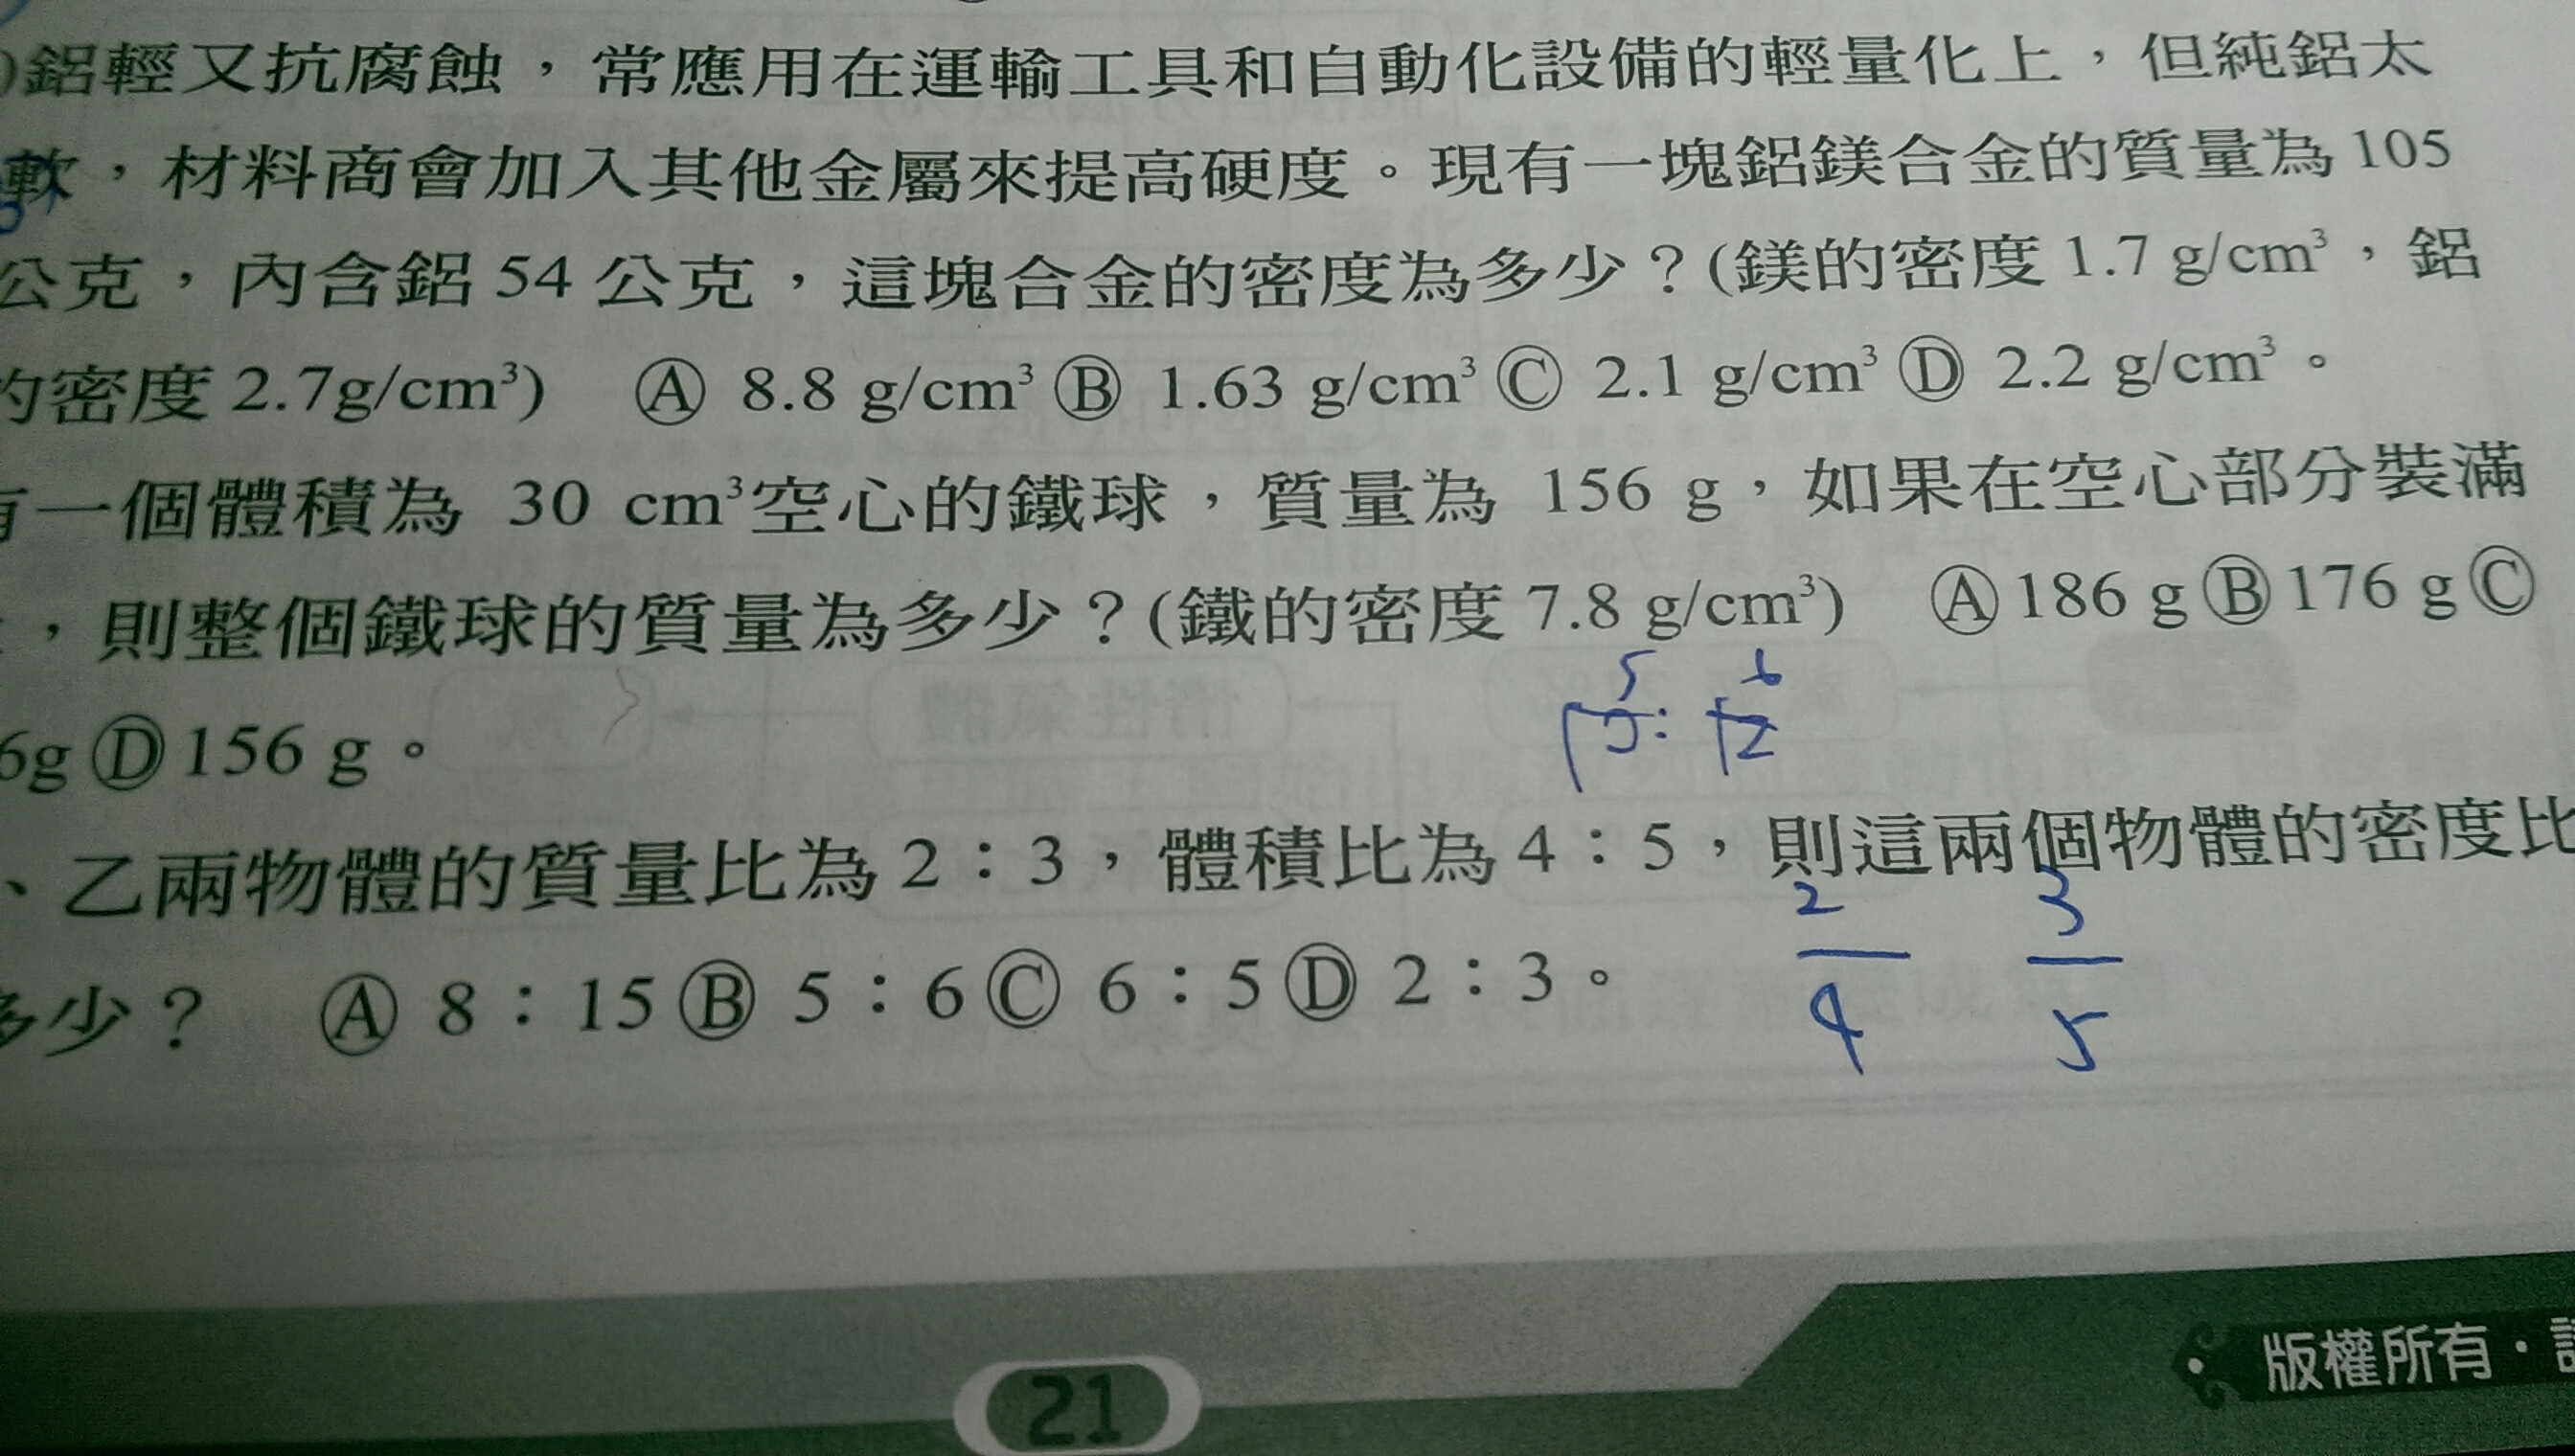 )鋁輕又抗腐蝕，常應用在運輸工具和自動化設備的輕量化上，但純鋁太
軟，材料商會加入其他金屬來提高硬度。現有一塊鋁鎂合金的質量為105
公克，內含鋁54公克，這塊合金的密度為多少？(鎂的密度1.7 g/cm³，鋁
的密度2.7g/cm³) Ⓐ 8.8 g/cm³ Ⓑ 1.63 g/cm³ Ⓒ 2.1 g/cm³ Ⓓ 2.2 g/cm³。
有一個體積為 30 cm³空心的鐵球，質量為 156 g，如果在空心部分裝滿
，則整個鐵球的質量為多少？(鐵的密度7.8 g/cm³) Ⓐ186 gⒷ176 gⒸ
5 6
12
6gⒹ156 g。
、乙兩物體的質量比為2：3，體積比為4：5，則這兩個物體的密度比
2 3
4 5
多少？ Ⓐ 8：15Ⓑ 5：6Ⓒ 6：5Ⓓ 2：3。
21
版權所有·